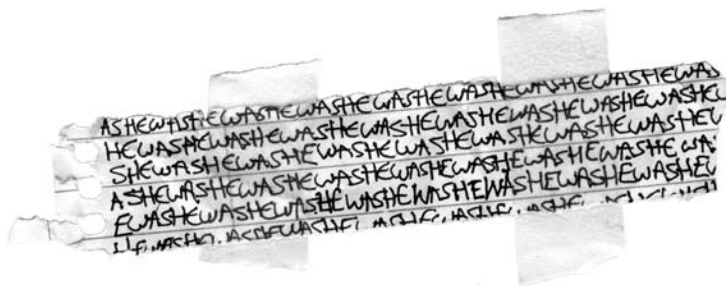 ASHEWASHEWASHEWASHEWASHEWASHEWASHEWASHEWAS
HEWASHEWASHEWASHEWASHEWASHEWASHEWASHEW
SHEWASHEWASHEWASHEWASHEWASHEWASHEWASHEW
ASHEWASHEWASHEWASHEWASHEWASHEWASHEWAS
EWASHEWASHEWASHEWASHEWASHEWASHEWASHEW